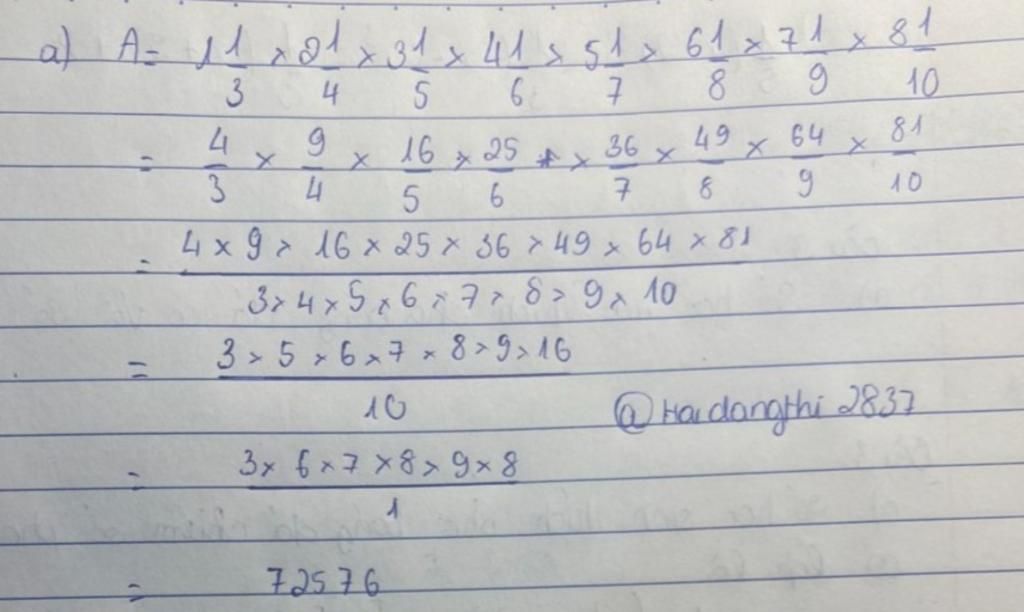 a) A = 1 1/3 × 2 1/4 × 3 1/5 × 4 1/6 × 5 1/7 × 6 1/8 × 7 1/9 × 8 1/10
= 4/3 × 9/4 × 16/5 × 25/6 × 36/7 × 49/8 × 64/9 × 81/10
= (4 × 9 × 16 × 25 × 36 × 49 × 64 × 81)/(3 × 4 × 5 × 6 × 7 × 8 × 9 × 10)
= (3 × 5 × 6 × 7 × 8 × 9 × 16)/10
@Haidangthi 2837
= (3 × 6 × 7 × 8 × 9 × 8)/1
= 72576